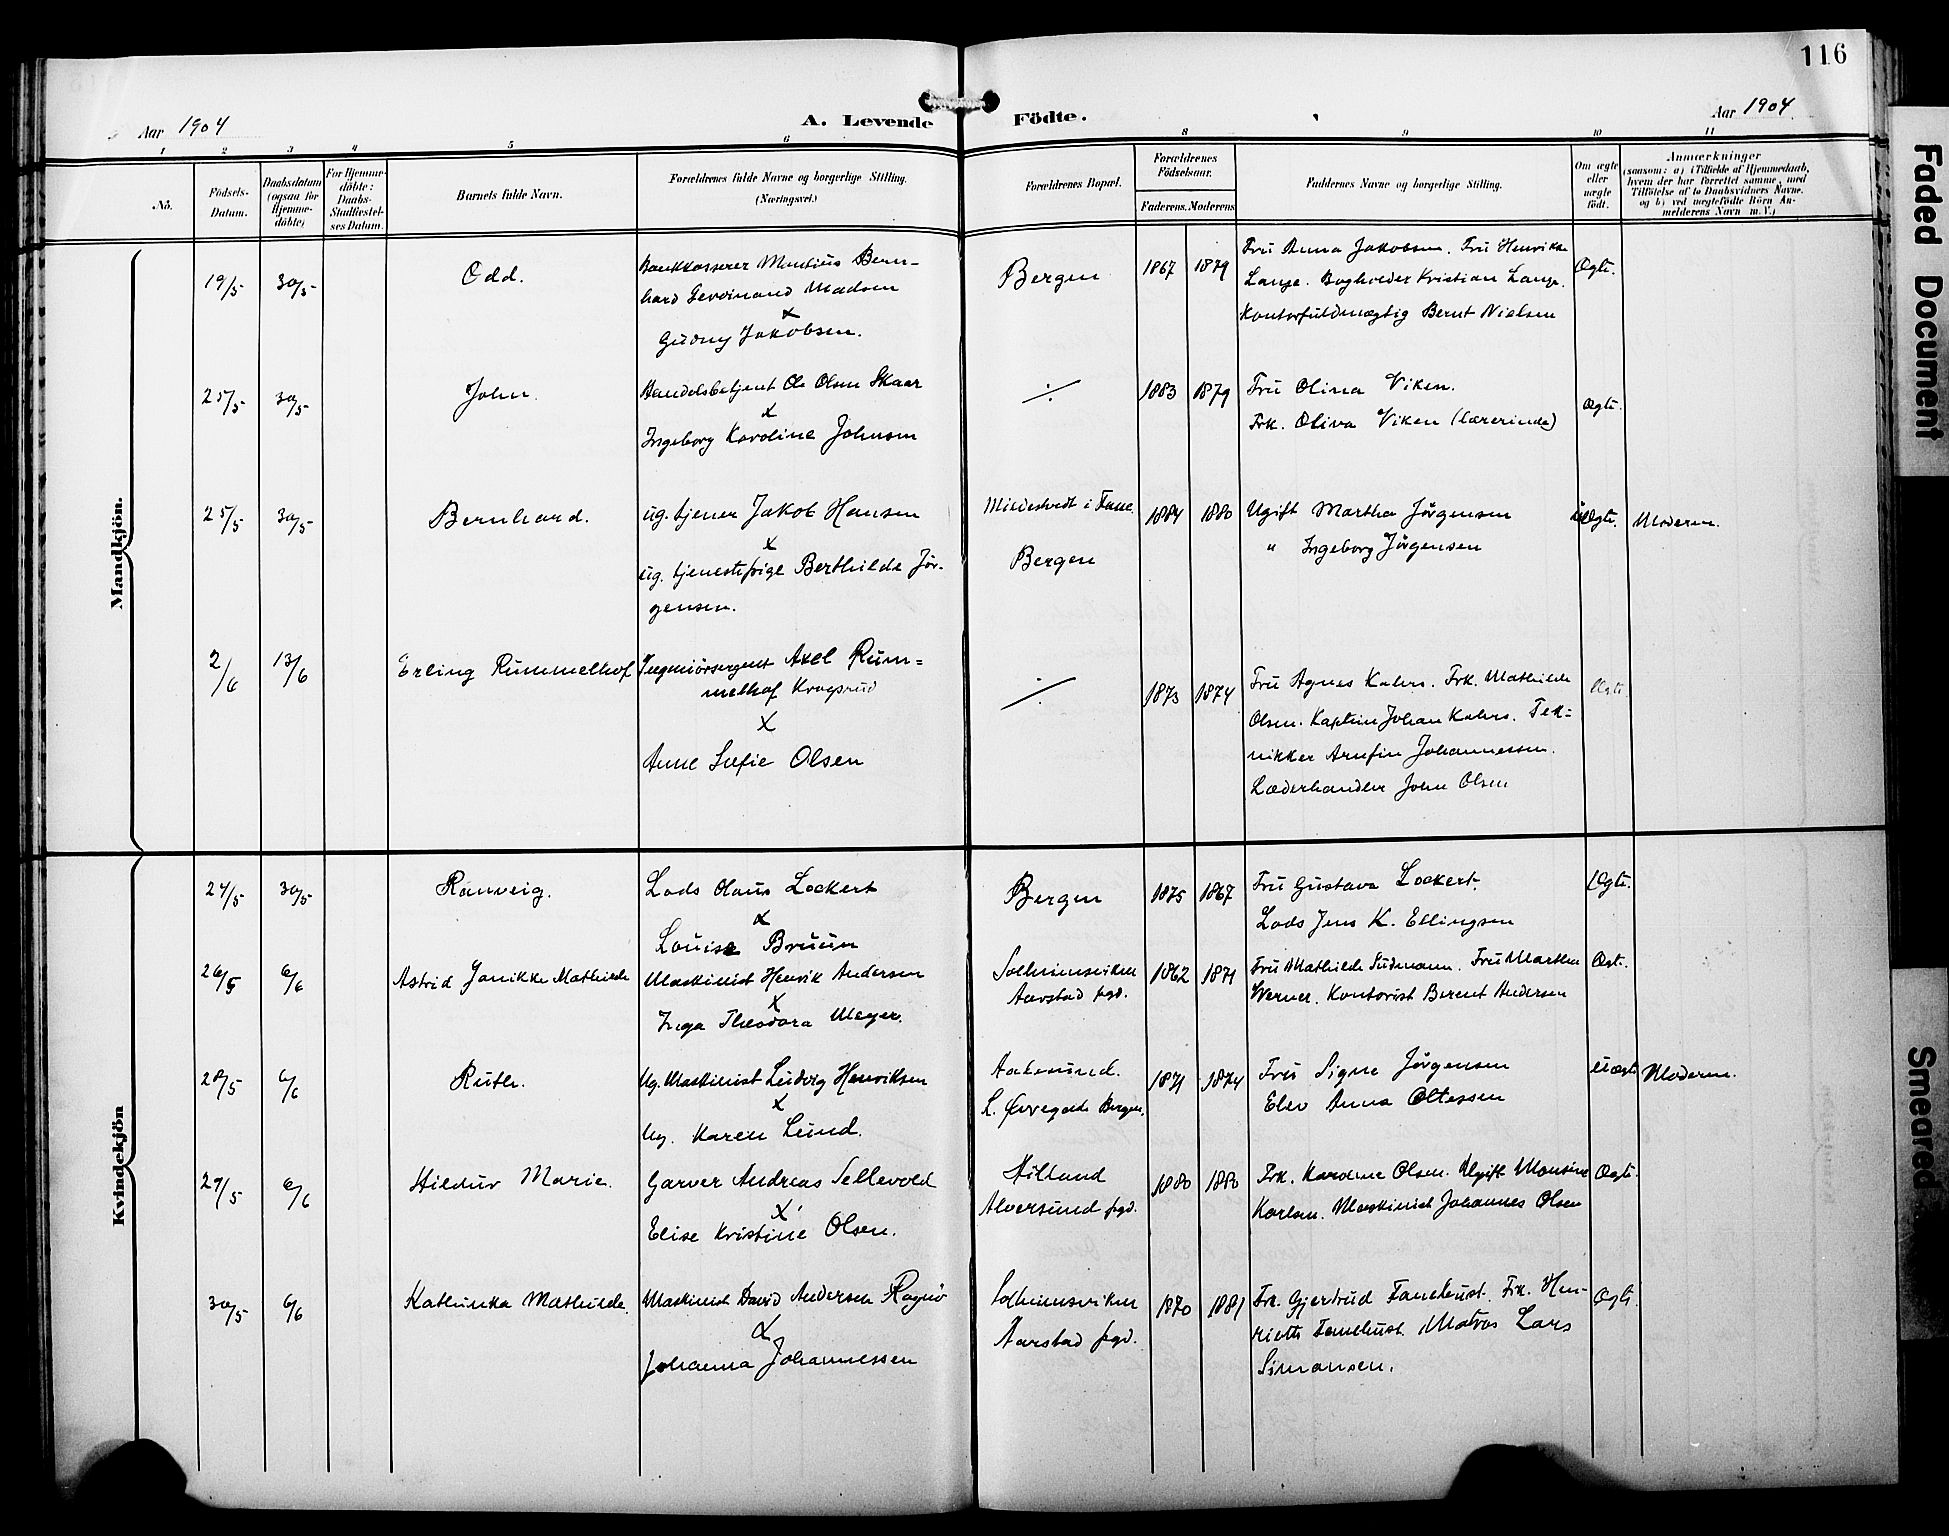 116
Aar 1904
A. Levende Födte.
Aar 1904
1 2 3 4 5 6 8 9 10 11
No.
Födsels-Datum.
Daabsdatum (ogsaa for Hjemme-döbte)
For Hjemme-döbte: Daabs-Stadfæstel-ses Datum.
Barnets fulde Navn.
Forældrenes fulde Navne og borgerlige Stilling. (Næringsvei.)
Forældrenes Bopæl.
Forældrenes Födselsaar.
Faderens. Moderens
Faddernes Navne og borgerlige Stilling.
Om ægte eller uægte födt.
Anmærkninger
(saasom: a) i Tilfælde af Hjemmedaab,
hvem der har forrettet samme, med
Tilföielse af to Daabsvidners Navne.
og b) ved uægtefödte Börn An-
melderens Navn m. V.)
Mandkjön.
19/5 30/5 Odd.
Bankkasserer Montius Bern-
hard Ferdinand Madsen
x
Gudny Jakobsen.
Bergen 1867 1879
Fru Anna Jakobsen. Fru Henrikke
Lange. Bogholder Kristian Lange.
Kontorfuldmægtig Bernt Nielsen
Ægte.
25/5 30/5 John.
Handelsbetjent Ole Olsen Skaar
x
Ingeborg Karoline Johnsen
÷ 1883 1879
Fru Olina Viken.
Frk. Oliva Viken (lærerinde)
Ægte.
25/5 30/5 Bernhard.
ug. tjener Jakob Hansen
x
ug. tjenestepige Berthilde Jör-
gensen.
i Fane.
Bergen
1884 1880
Ugift Martha Jörgensen
" Ingeborg Jörgensen
uægte. Moderen.
2/6 13/6 Erling Rummelhof
Ingeniörsergent Axel Rum-
melhof Kragsrud
x
Anne Sofie Olsen
÷ 1873 1874
Fru Agnes Kahrs. Frk. Mathilde
Olsen. Kaptein Johan Kahrs. Tek-
nikker Arnfin Johannessen.
Læderhandler John Olsen
Ægte.
Kvindekjön
24/5 30/5 Ranveig.
Lods Olaus Lockert
x
Louise Bruun
Bergen 1875 1867
Fru Gustava Lockert.
Lods Jens K. Ellingsen
Ægte.
26/5 6/6 Astrid Janikke Mathilde
Maskinist Henrik Andersen
x
Inga Theodora Meyer.
Solheimsviken
Aarstad pgd.
1862 1871
Fru Mathilde Sudmann. Fru Marthe
Werner. Kontorist Berent Andersen
Ægt.
28/5 6/6 Ruth.
Ug. Maskinist Ludvig Henriksen
x
Ug. Karen Lund.
Aalesund.
L. Øvregade Bergen.
1871 1874
Fru Signe Jörgensen
Elev Anna Ottessen
uægte Moderen.
29/5 6/6 Hildur Marie.
Garver Andreas Sellevold
x
Elise Kristine Olsen.
Hilland
Alversund pgd.
1880 1880
Frk. Karoline Olsen. Ugift Monsine
Karlsen. Maskinist Johannes Olsen
Ægte.
30/5 6/6 Kathinka Mathilde.
Maskinist David Andersen Ragnö
x
Johanna Johannessen
Solheimsviken
Aarstad pgd.
1870 1881
Frk. Gjertrud Fanehust. Frk. Hen-
riette Fanehust. Matros Lars
Simonsen.
Ægte.
Faded Document
Smeared